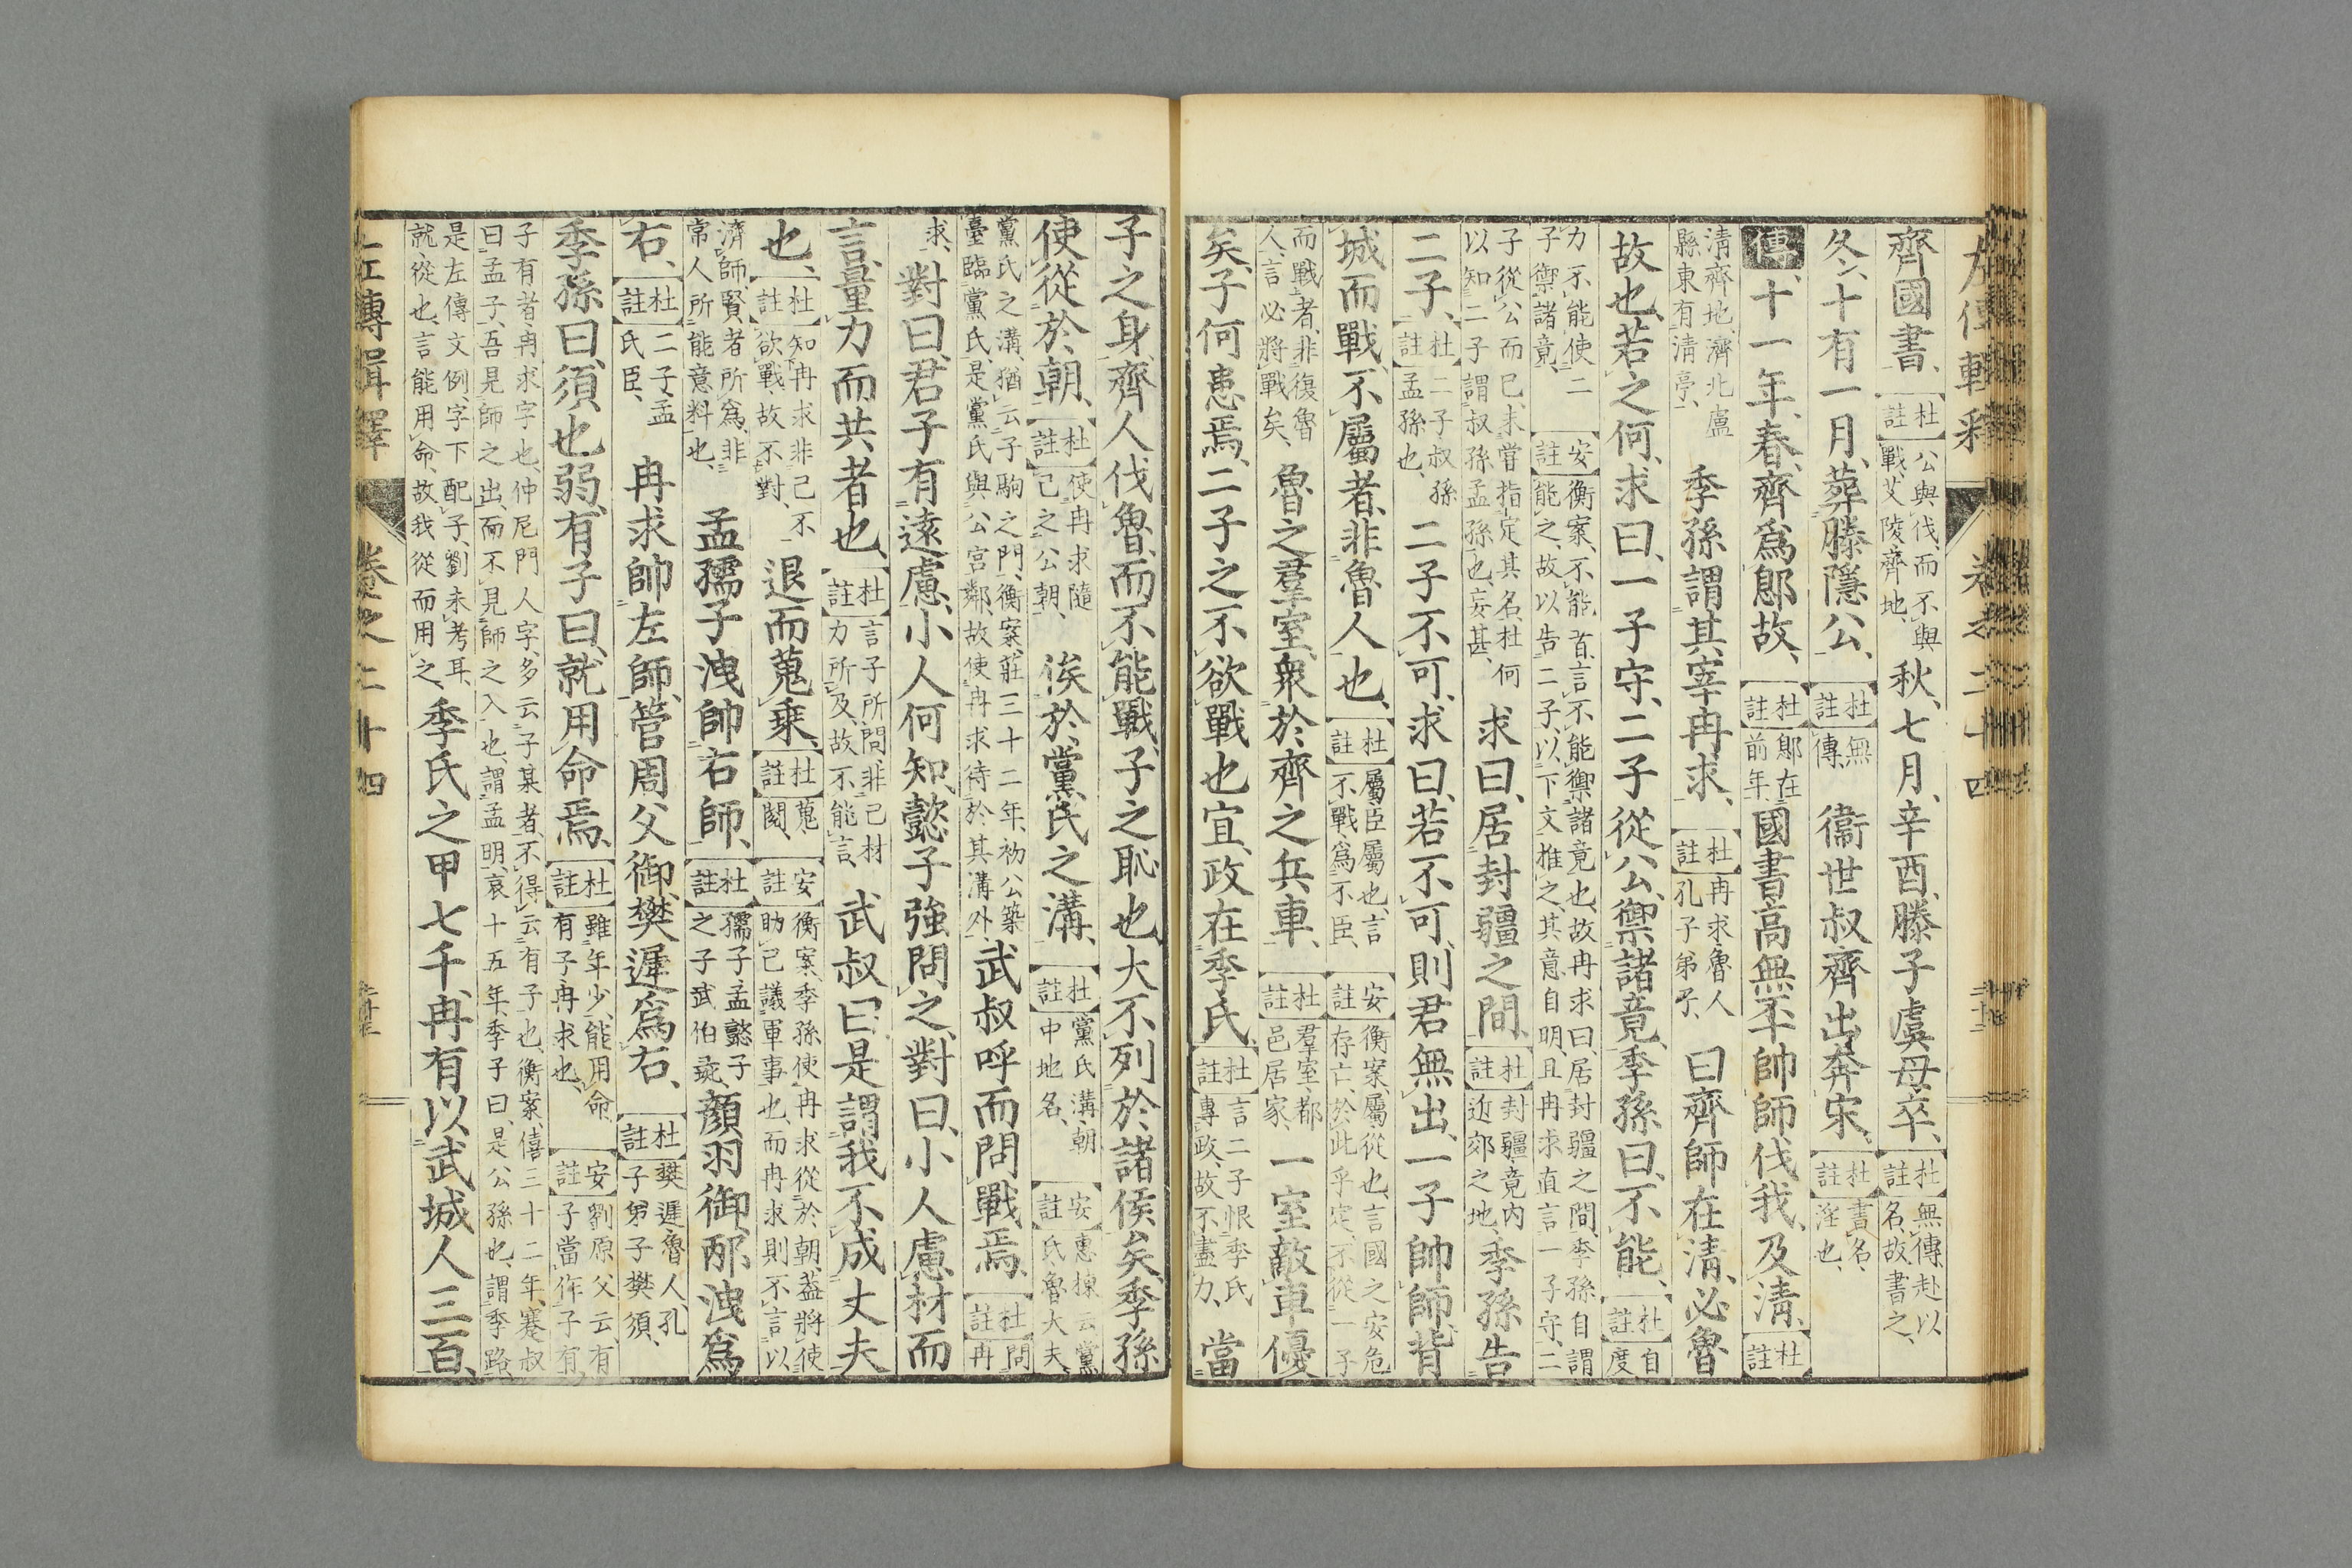 齊國書、杜註公與伐、而不與戰、艾陵、齊地、秋、七月、辛酉、滕子虞母卒、杜註無傳、赴以名、故書之、
冬、十有一月、葬滕隱公、杜註無傳、衞世叔齊出奔宋、杜註書名、淫也、
傳、十一年、春、齊爲鄎故、杜註鄎在前年、國書高無丕帥師伐我、及淸、杜註
淸齊地、濟北盧縣東有淸亭、季孫謂其宰冉求、杜註冉求、魯人、孔子弟子、曰、齊師在淸、必魯
故也、若之何、求曰、一子守、二子從公、禦諸竟、季孫曰、不能、杜註自度
力不能使二子禦諸竟、安註衡案、不能、首言不能禦諸竟也、故冉求曰、居封疆之間、季孫自謂能之、故以告二子、以下文推之、其意自明、且冉求直言一子守、二
子從公而已、未嘗指定其名、杜何以知二子謂叔孫孟孫也、妄甚、求曰、居封疆之間、杜註封疆、竟內近郊之地、季孫告
二子、杜註二子、叔孫孟孫也、二子不可、求曰、若不可、則君無出、一子帥師、背
城而戰、不屬者、非魯人也、杜註屬、臣屬也、言不戰、爲不臣、安註衡案、屬、從也、言國之安危存亡、於此乎定、不從一子
而戰者、非復魯人、言必將戰矣、魯之羣室、衆於齊之兵車、杜註羣室、都邑居家、一室敵車優
矣、子何患焉、二子之不欲戰也宜、政在季氏、杜註言二子恨季氏專政、故不盡力、當
左傳輯釋 卷之二十四
子之身、齊人伐魯、而不能戰、子之恥也、大不列於諸侯矣、季孫
使從於朝、杜註使冉求隨己之公朝、俟於黨氏之溝、杜註黨氏溝、朝中地名、安註惠棟云、黨氏、魯大夫、
黨氏之溝、猶云子駒之門、衡案、莊三十二年、初公築臺臨黨氏、是黨氏與公宮鄰、故使冉求待於其溝外、武叔呼而問戰焉、杜註問冉
求、對曰、君子有遠慮、小人何知、懿子強問之、對曰、小人慮材而
言、量力而共者也、杜註言子所問、非己材力所及、故不能言、武叔曰、是謂我不成丈夫
也、杜註知冉求非己不欲戰、故不對、退而蒐乘、杜註蒐、閱、安註衡案、季孫使冉求從於朝、蓋將使助己議軍事也、而冉求則不言、以
濟師、賢者所爲、非常人所能意料也、孟孺子洩帥右師、杜註孺子、孟懿子之子武伯彘、顏羽御、邴洩爲
右、杜註二子、孟氏臣、冉求帥左師、管周父御、樊遲爲右、杜註樊遲、魯人、孔子弟子樊須、
季孫曰、須也弱、有子曰、就用命焉、杜註雖年少、能用命、有子、冉求也、安註劉原父云、有子當作子有、
子有者、冉求字也、仲尼門人字、多云子某者、不得云有子也、衡案、僖三十二年、蹇叔曰、孟子、吾見師之出、而不見師之入也、謂孟明、哀十五年、季子曰、是公孫也、謂季路、
是左傳文例、字下配子、劉未考耳、就、從也、言能用命、故我從而用之、季氏之甲七千、冉有以武城人三百、
左傳輯釋 卷之二十四